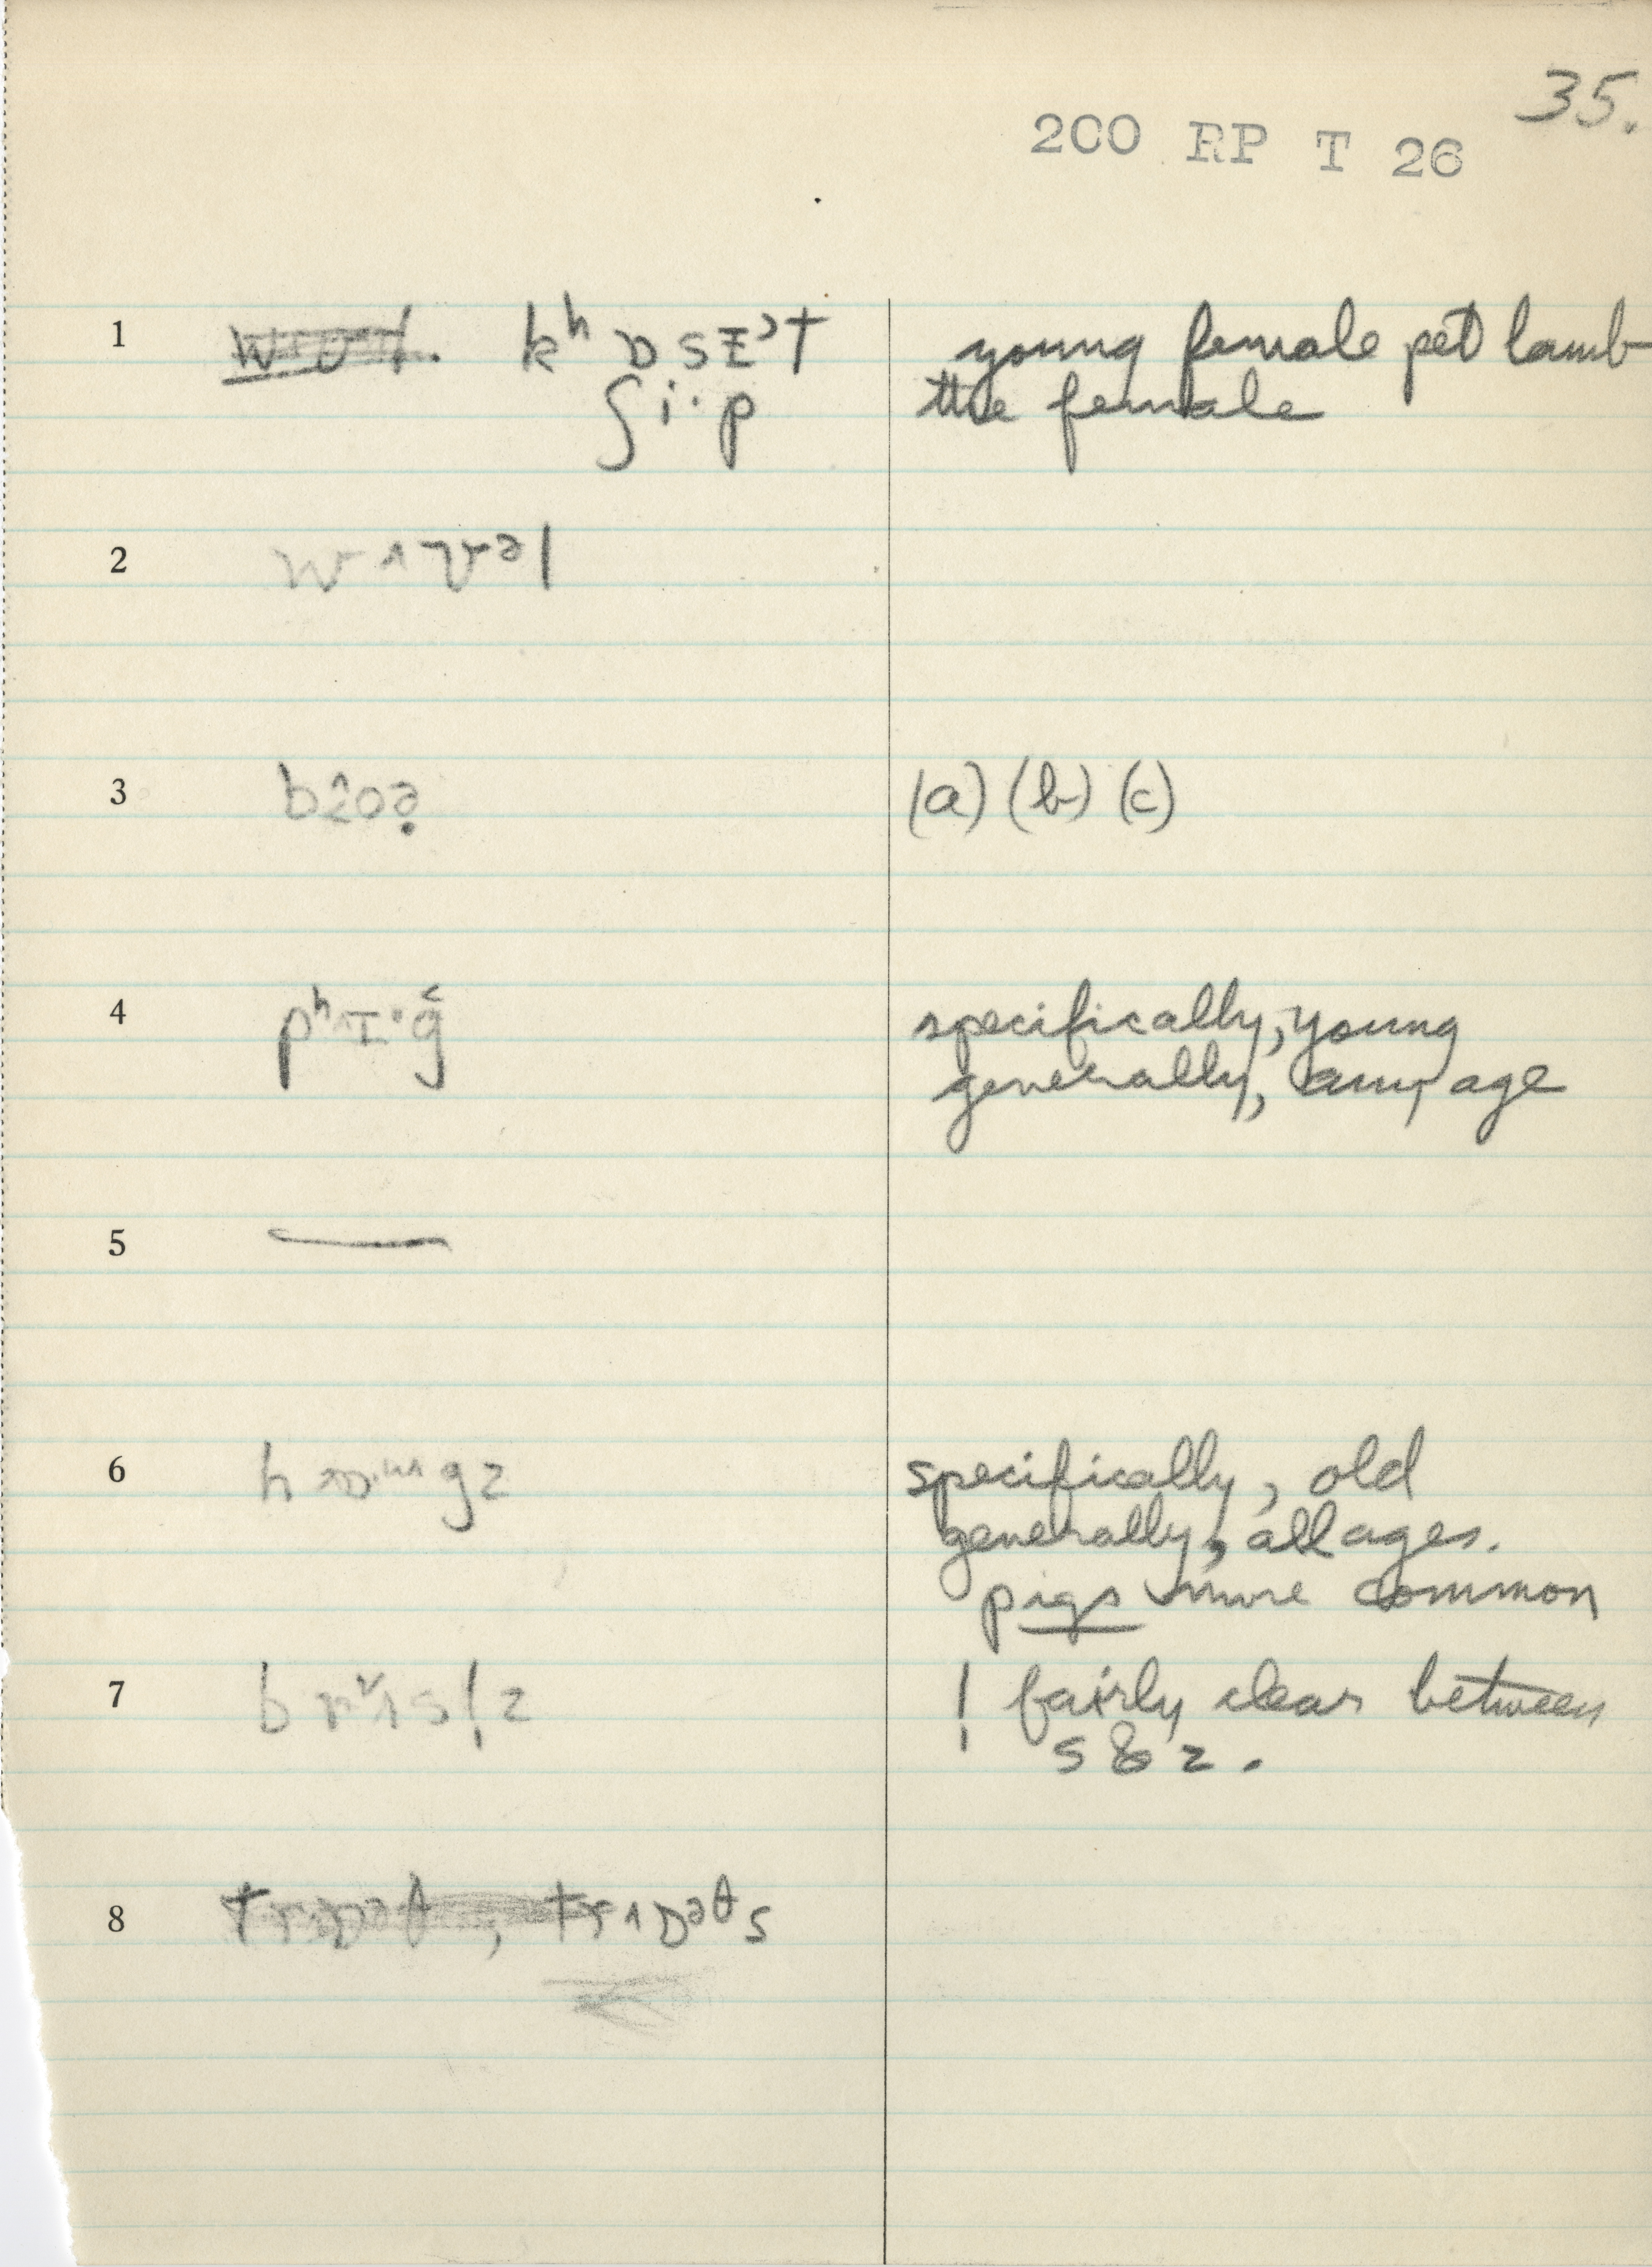 35.
200 RP T 26
1 kʰ ɒ s ᵻ ᵊ t young female pet lamb
ʃ i · p the female
2 w ʌ v ə l
3 (a) (b) (c)
4 pʰ ɪ · ǧ specifically, young
generally, any age
5 —
6 specifically, old
generally, all ages.
pigs more common
7 ! fairly clear between
s & z .
8